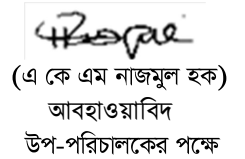 (এ কে এম নাজমুল হক)
আবহাওয়াবিদ
উপ-পরিচালকের পক্ষে